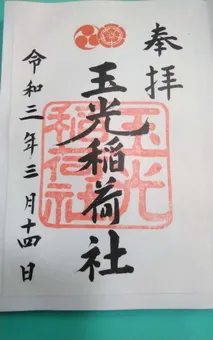 奉拝
玉光稲荷社
玉光稲荷社
令和三年三月十四日